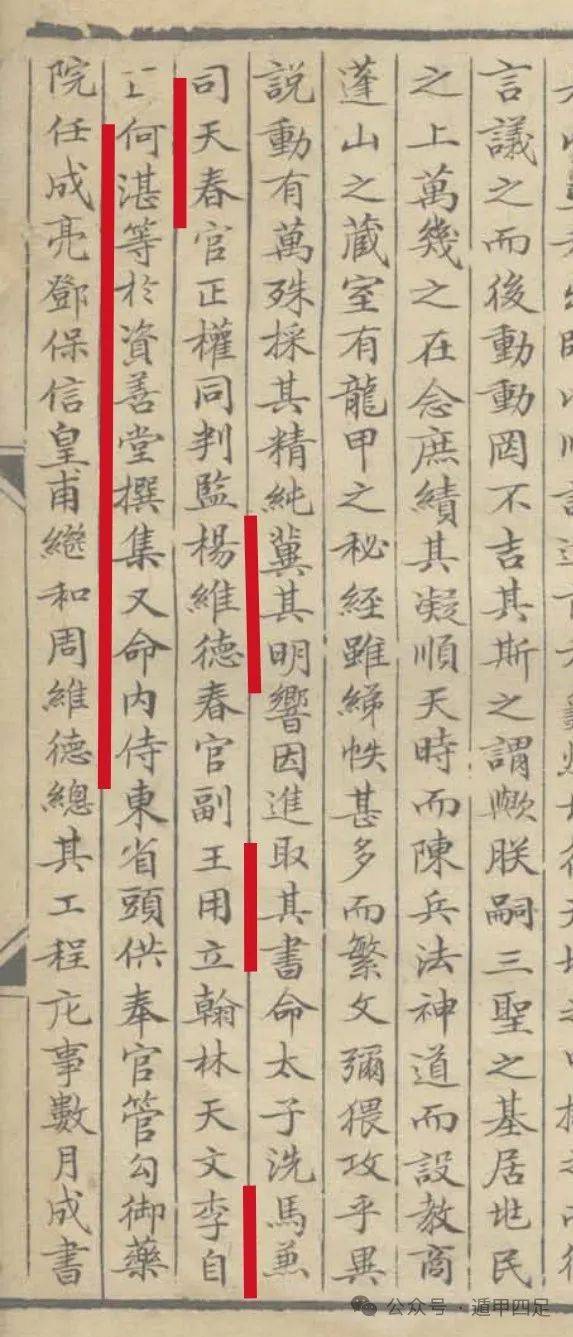 言議之而後動動罔不吉其斯之謂歟朕嗣三聖之基居兆民
之上萬幾之在念庶績其凝順天時而陳兵法神道而設教商
蓬山之蔵室有龍甲之秘經雖綈帙甚多而繁文彌猥攻乎異
説動有萬殊採其精純冀其明響因進取其書命太子洗馬兼
司天春官正權同判監楊維德春官副王用立翰林天文李自
正何湛等於資善堂撰集又命内侍東省頭供奉官管勾御藥
院任成亮鄧保信皇甫繼和周維德總其工程庀事數月成書
公众号·遁甲四足